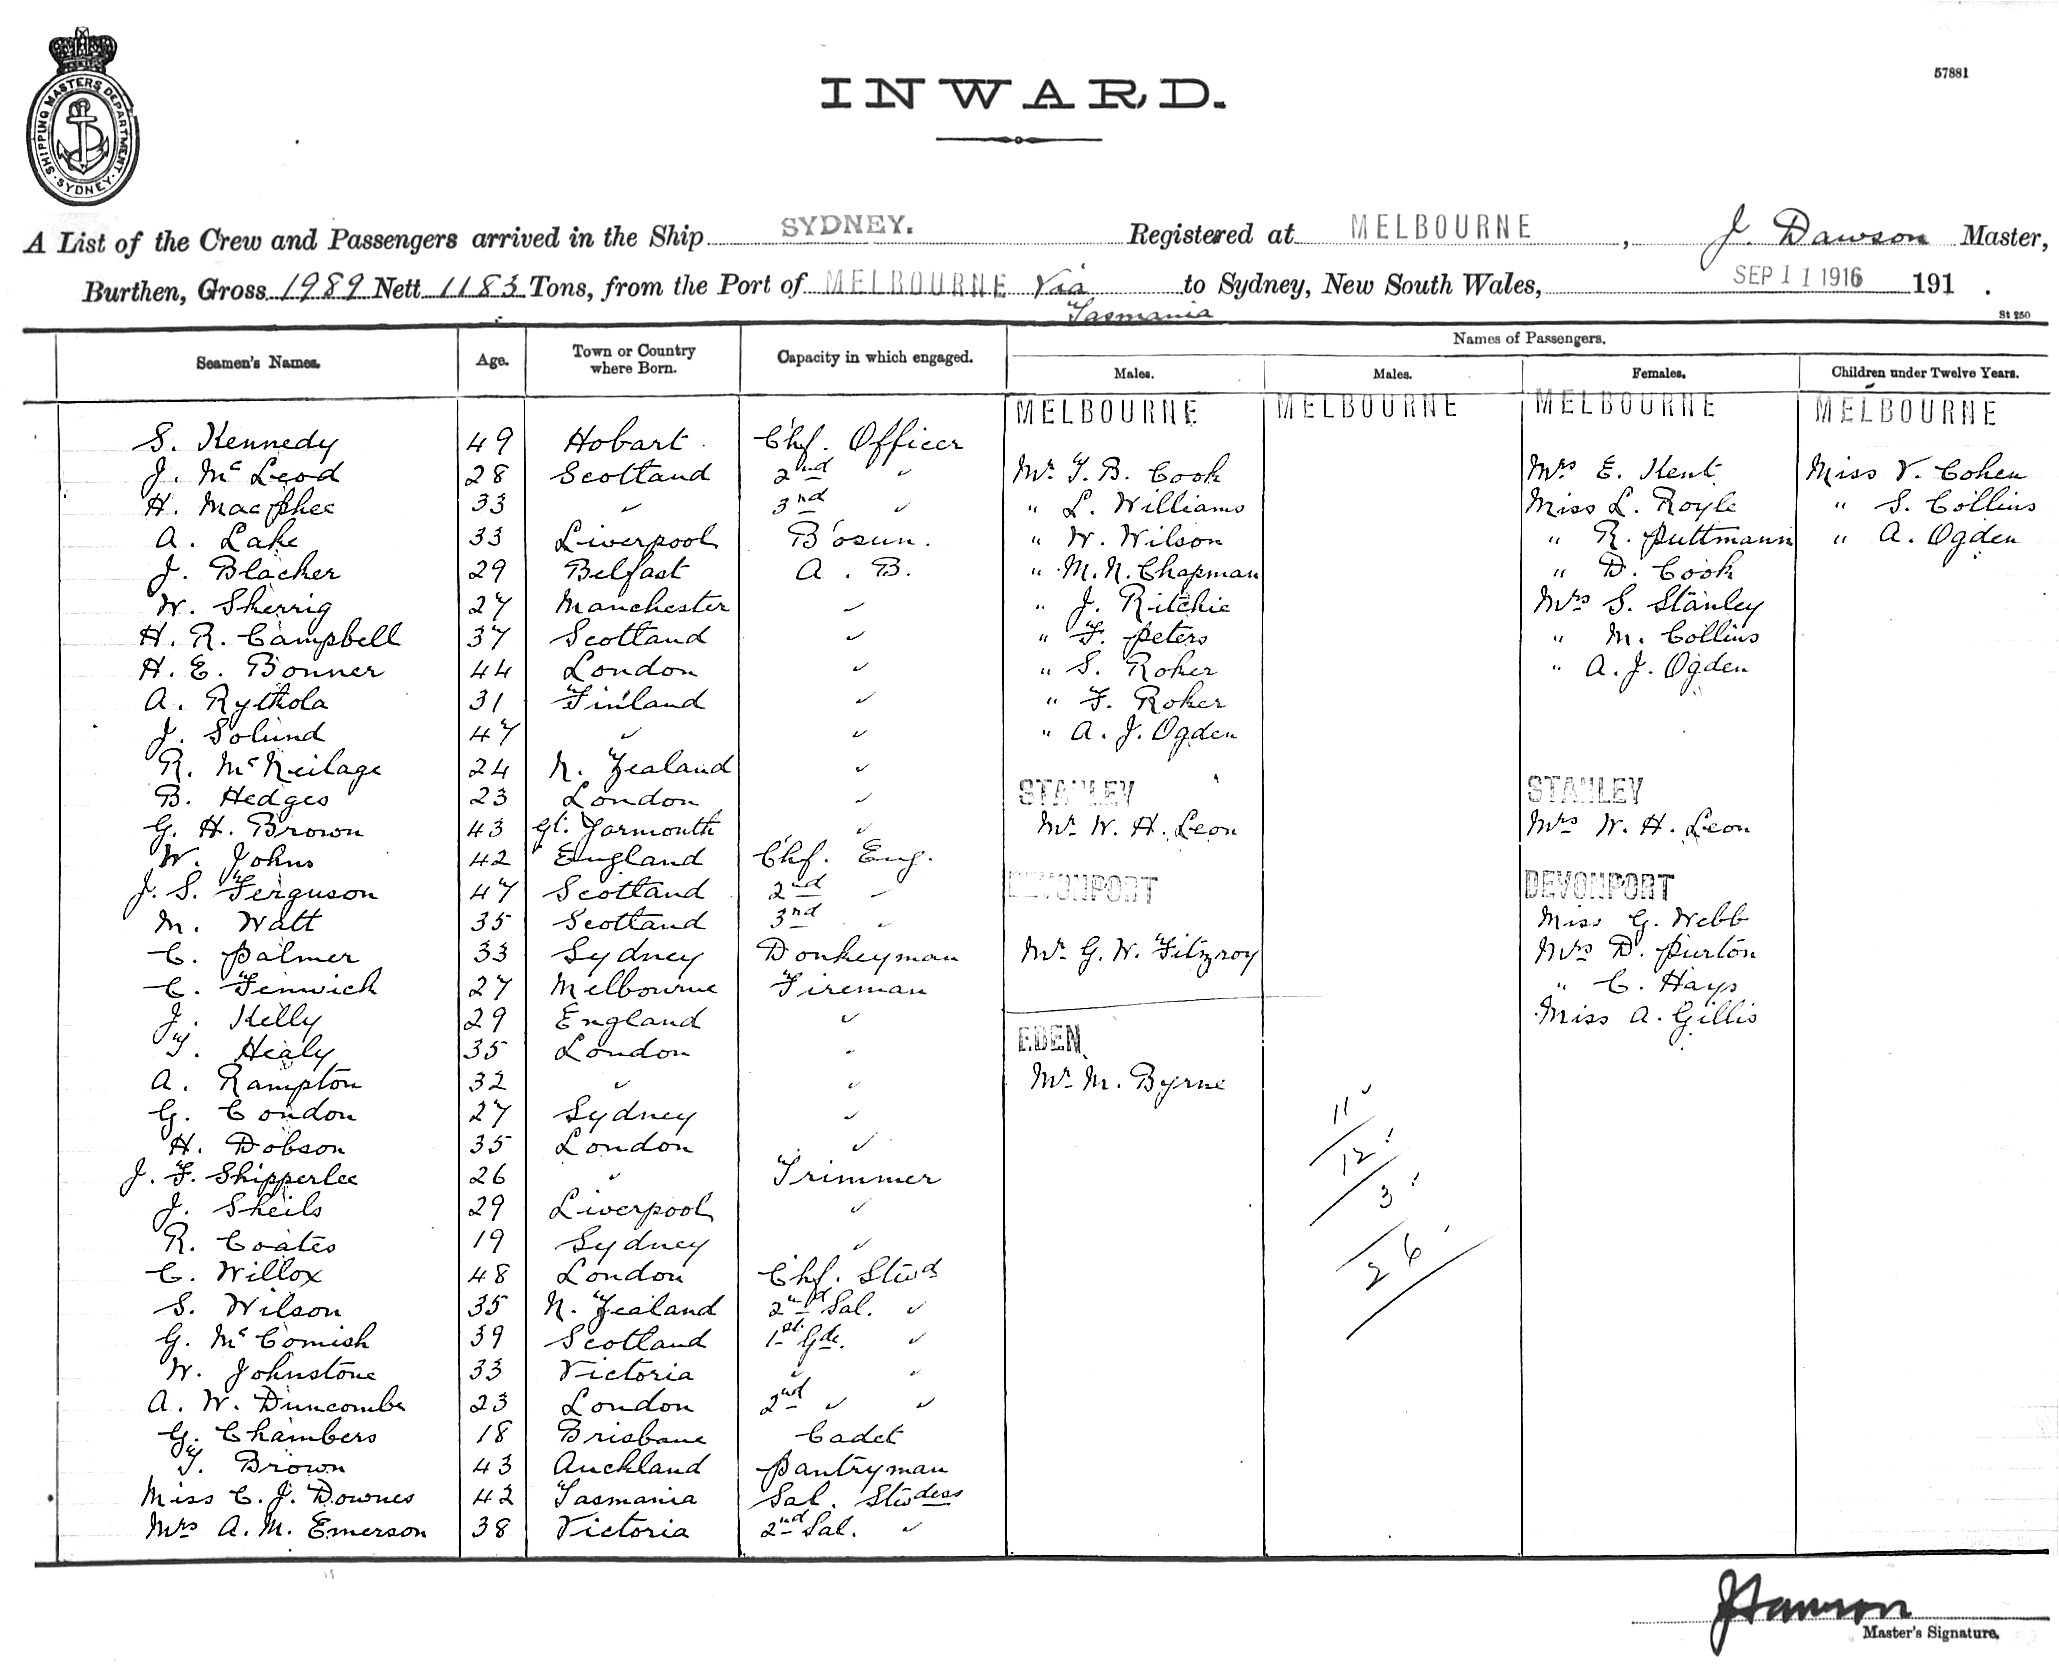 SHIPPING MASTERS DEPARTMENT
SYDNEY
57881
INWARD.
A List of the Crew and Passengers arrived in the Ship SYDNEY. Registered at MELBOURNE, J. Dawson Master,
Burthen, Gross 1989 Nett 1183 Tons, from the Port of MELBOURNE Via Tasmania to Sydney, New South Wales, SEP 11 1916 191 .
St 250
Seamen's Names. Age. Town or Country where Born. Capacity in which engaged. Names of Passengers.
Males. Males. Females. Children under Twelve Years.
MELBOURNE MELBOURNE MELBOURNE MELBOURNE
S. Kennedy 49 Hobart Chf. Officer
J. McLeod 28 Scotland 2nd " Mr. T. B. Cook Mrs E. Kent Miss V. Cohen
H. Macphee 33 " 3nd " " L. Williams Miss L. Royle " S. Collins
A. Lake 33 Liverpool B'osun. " W. Wilson " R. Puttmann " A. Ogden
J. Blacker 29 Belfast A. B. " M. N. Chapman " D. Cook
W. Sherrig 27 Manchester " " J. Ritchie Mrs S. Stanley
H. R. Campbell 37 Scotland " " F. Peters " M. Collins
H. E. Bonner 44 London " " S. Roker " A. J. Ogden
A. Rythola 31 Finland " " F. Roker
J. Solund 47 " " " A. J. Ogden
R. McNeilage 24 N. Zealand "
B. Hedges 23 London " STANLEY STANLEY
G. H. Brown 43 Gt. Yarmouth " Mr. W. H. Leon Mrs W. H. Leon
W. Johns 42 England Chf. Eng.
J. S. Ferguson 47 Scotland 2nd " DEVONPORT DEVONPORT
M. Watt 35 Scotland 3nd " Miss G. Webb
C. Palmer 33 Sydney Donkeyman Mr. G. W. Fitzroy Mrs D. Purton
C. Fenwick 27 Melbourne Fireman " C. Hays
J. Kelly 29 England " Miss A. Gillis
T. Healy 35 London " EDEN
A. Rampton 32 " " Mr. M. Byrne
G. Condon 27 Sydney " 11
H. Dobson 35 London " 12
J. F. Shipperlee 26 " Trimmer
J. Sheils 29 Liverpool " 3
R. Coates 19 Sydney "
C. Willox 48 London Chf. Stwd 26
S. Wilson 35 N. Zealand 2nd Sal. "
G. McComish 39 Scotland 1st Gde. "
W. Johnstone 33 Victoria " "
A. W. Duncombe 23 London 2nd " "
G. Chambers 18 Brisbane Cadet
T. Brown 43 Auckland Pantryman
Miss C. J. Downes 42 Tasmania Sal. Stwdess
Mrs A. M. Emerson 38 Victoria 2nd Sal. "
J Dawson
Master's Signature.